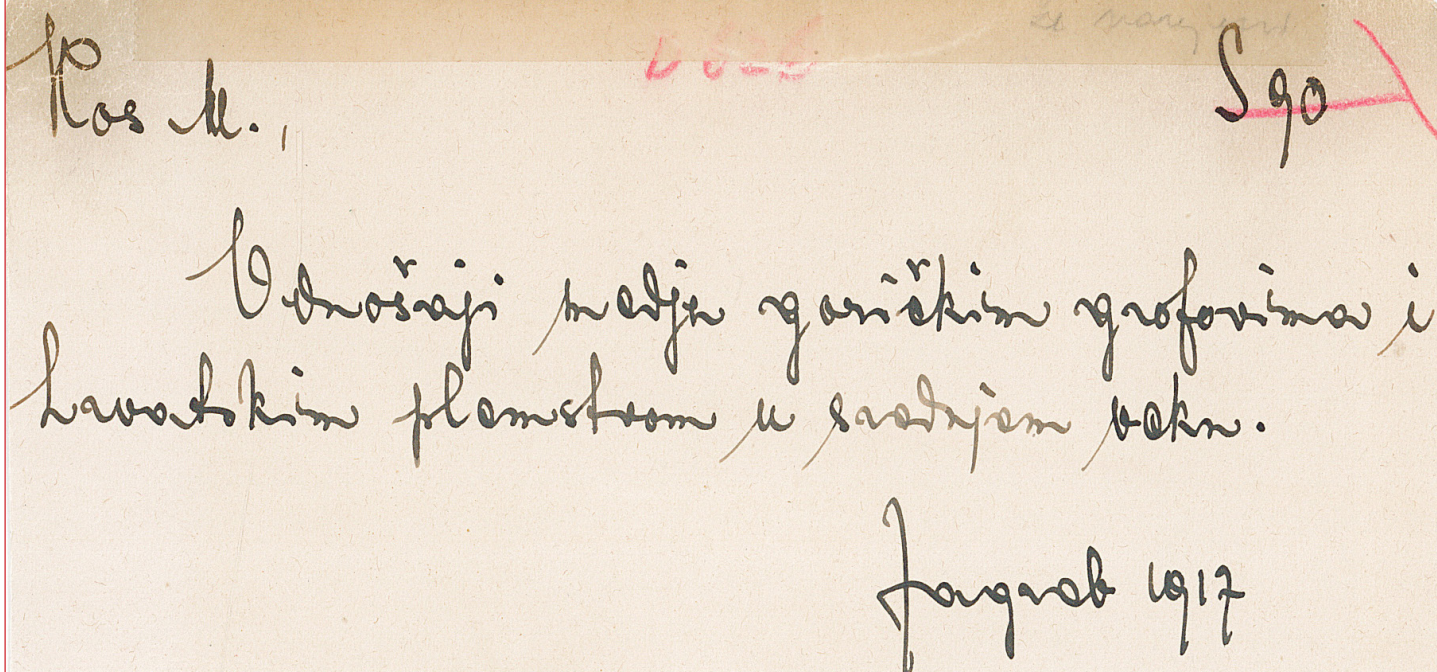 Kos M.,
S 90
Odnošaji medju goričkim grofovima i
hrvatskim plemstvom u srednjem veku.
Zagreb 1917